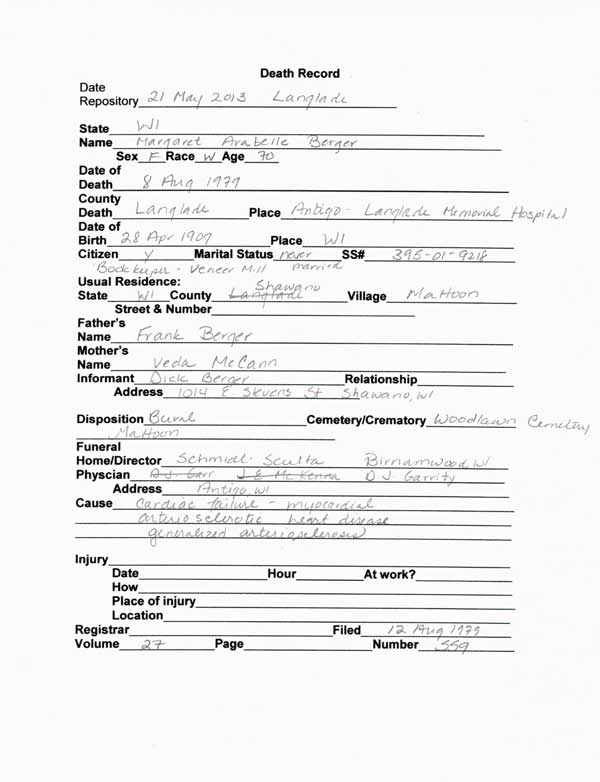 Death Record
Date
Repository 21 May 2013 Langlade
State WI
Name Margaret Arabelle Berger
Sex F Race W Age 70
Date of
Death 8 Aug 1979
County
Death Langlade Place Antigo - Langlade Memorial Hospital
Date of
Birth 28 Apr 1909 Place WI
Citizen y Marital Status never married SS# 395-01-9218
Bookkeeper - Veneer Mill
Usual Residence: Shawano
State WI County Langlade Village Mattoon
Street & Number
Father's
Name Frank Berger
Mother's
Name Veda McCann
Informant Dick Berger Relationship
Address 1014 E Stevens St Shawano, WI
Disposition Burial Cemetery/Crematory Woodlawn Cemetery
Mattoon
Funeral
Home/Director Schmidt-Sculta Birnamwood, WI
Physcian D.J. Garr J E McKenna D J Garrity
Address Antigo, WI
Cause Cardiac failure - myocardial
arteriosclerotic heart disease
generalized arteriosclerosis
Injury
Date Hour At work?
How
Place of injury
Location
Registrar Filed 12 Aug 1979
Volume 27 Page Number 559